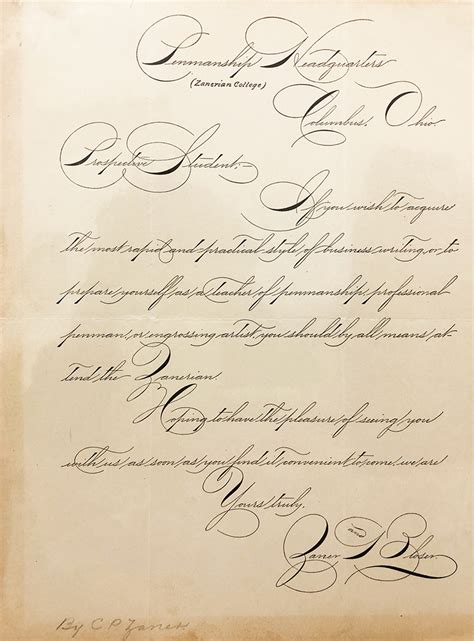 Penmanship Headquarters
(Zanerian College)
Columbus, Ohio
Prospective Student:-
If you wish to acquire
the most rapid and practical style of business writing, or to
prepare yourself as a teacher of penmanship, professional
penman, or engrossing artist, you should, by all means, at-
tend the Zanerian.
Hoping to have the pleasure of seeing you
with us as soon as you find it convenient to come, we are
Yours truly,
Zaner and Bloser.
By C P Zaner